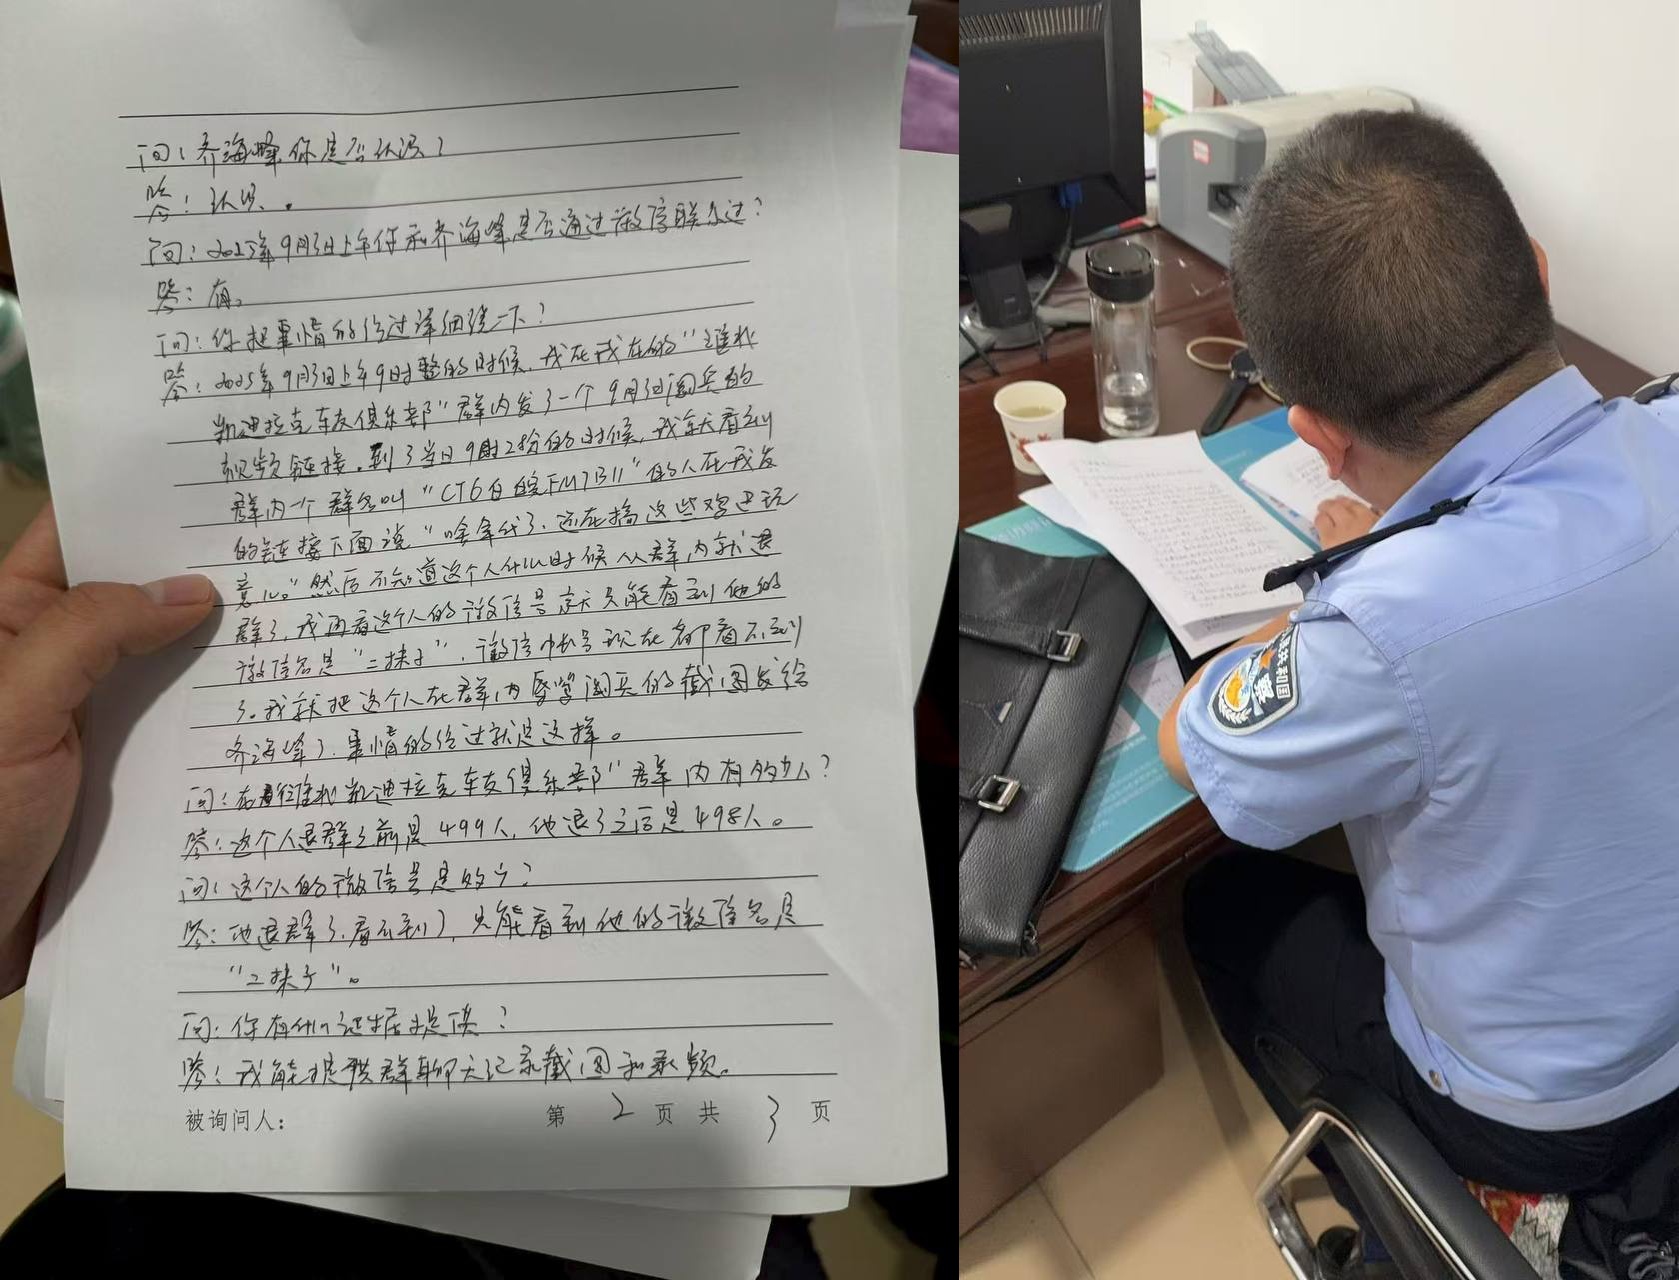 问：齐海峰你是否认识？
答：认识。
问：2025年9月3日上午你和齐海峰是否通过微信联系过？
答：有。
问：你把事情的经过详细说一下？
答：2025年9月3日上午9时整的时候，我在我在的“淮北
凯迪拉克车友俱乐部”群内发了一个9月3日阅兵的
视频链接，到了当日9时2分的时候，我就看到
群内一个群名叫“CT6白皖FM7B11”的人在我发
的链接下面说“啥年代了，还在搞这些鸡巴玩
意儿。”然后不知道这个人什么时候从群内就退
群了，我再看这个人的微信号就只能看到他的
微信名是“二抹子”，微信号现在都看不到
了。我就把这个人在群内辱骂阅兵的截图发给
齐海峰了，事情的经过就是这样。
问：在淮北凯迪拉克车友俱乐部”群内有多少人？
答：这个人退群之前是499人，他退了之后是498人。
问：这个人的微信号是多少？
答：他退群了，看不到了，只能看到他的微信名是
“二抹子”。
问：你有什么证据提供？
答：我能提供群聊天记录截图和录频。
被询问人： 第 2 页 共 3 页
共和国